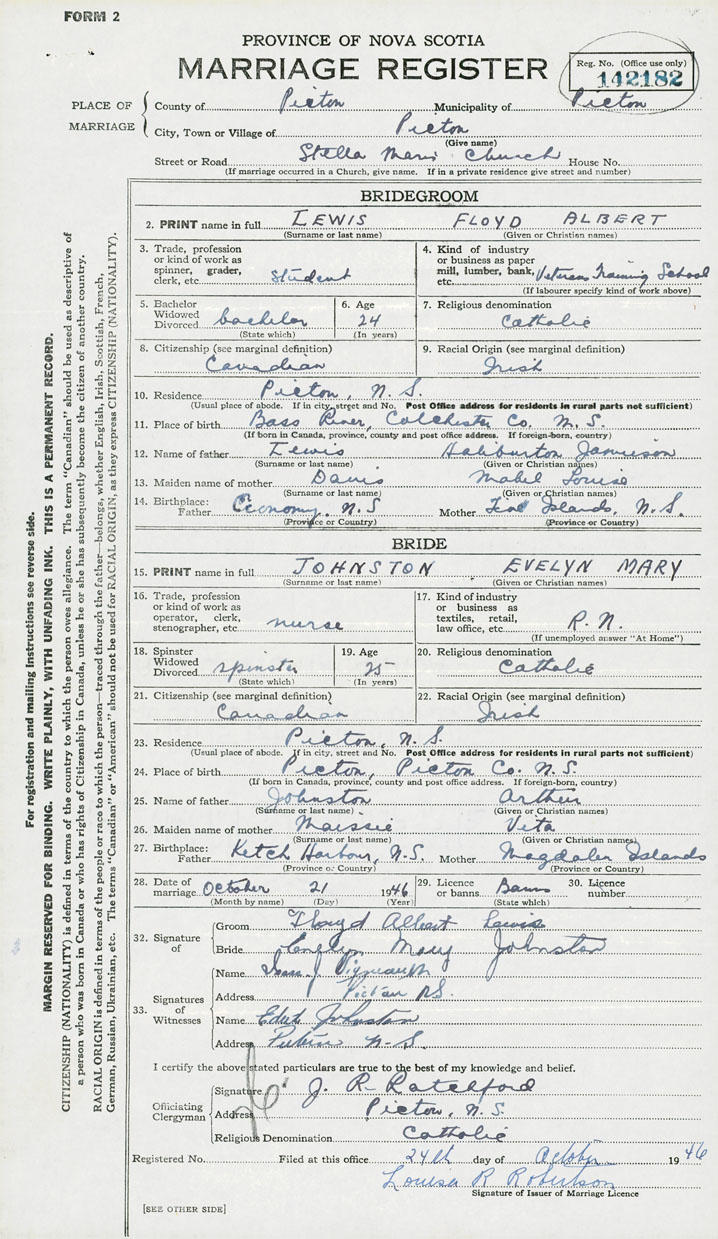 FORM 2
PROVINCE OF NOVA SCOTIA
MARRIAGE REGISTER
Reg. No. (Office use only)
142182
PLACE OF MARRIAGE
County of Pictou Municipality of Pictou
City, Town or Village of Pictou
(Give name)
Street or Road Stella Maris Church House No.
(If marriage occurred in a Church, give name. If in a private residence give street and number)
BRIDEGROOM
2. PRINT name in full LEWIS FLOYD ALBERT
(Surname or last name) (Given or Christian names)
3. Trade, profession or kind of work as spinner, grader, clerk, etc. Student
4. Kind of industry or business as paper mill, lumber, bank, etc. Veterans Training School
(If labourer specify kind of work above)
5. Bachelor Widowed Divorced bachelor
(State which)
6. Age 24
(In years)
7. Religious denomination
Catholic
8. Citizenship (see marginal definition)
Canadian
9. Racial Origin (see marginal definition)
Irish
10. Residence Pictou, N.S.
(Usual place of abode. If in city, street and No. Post Office address for residents in rural parts not sufficient)
11. Place of birth Bass River, Colchester Co. N.S.
(If born in Canada, province, county and post office address. If foreign-born, country)
12. Name of father Lewis Haliburton Jamieson
(Surname or last name) (Given or Christian names)
13. Maiden name of mother Davis Mabel Louise
(Surname or last name) (Given or Christian names)
14. Birthplace: Father Economy, N.S Mother Five Islands, N.S.
(Province or Country) (Province or Country)
BRIDE
15. PRINT name in full JOHNSTON EVELYN MARY
(Surname or last name) (Given or Christian names)
16. Trade, profession or kind of work as operator, clerk, stenographer, etc nurse
17. Kind of industry or business as textiles, retail, law office, etc. R.N.
(If unemployed answer "At Home")
18. Spinster Widowed Divorced spinster
(State which)
19. Age 25
(In years)
20. Religious denomination
Catholic
21. Citizenship (see marginal definition)
Canadian
22. Racial Origin (see marginal definition)
Irish
23. Residence Pictou, N.S.
(Usual place of abode. If in city, street and No. Post Office address for residents in rural parts not sufficient)
24. Place of birth Pictou, Pictou Co. N.S.
(If born in Canada, province, county and post office address. If foreign-born, country)
25. Name of father Johnston Arthur
(Surname or last name) (Given or Christian names)
26. Maiden name of mother Vita
(Surname or last name) (Given or Christian names)
27. Birthplace: Father Ketch Harbour, N.S. Mother Magdalen Islands
(Province or Country) (Province or Country)
28. Date of marriage October 21 1946
(Month by name) (Day) (Year)
29. Licence or banns Banns
(State which)
30. Licence number
32. Signature of
Groom Floyd Albert Lewis
Bride Evelyn Mary Johnston
33. Signatures of Witnesses
Name
Address Pictou N.S.
Name Edith Johnston
Address Pictou N.S.
I certify the above stated particulars are true to the best of my knowledge and belief.
Officiating Clergyman
Signature J. R. Ratchford
Address Pictou, N.S.
Religious Denomination Catholic
Registered No. Filed at this office 24th day of October 1946
Louisa R Robertson
Signature of Issuer of Marriage Licence
[SEE OTHER SIDE]
For registration and mailing instructions see reverse side.
MARGIN RESERVED FOR BINDING. WRITE PLAINLY, WITH UNFADING INK. THIS IS A PERMANENT RECORD.
CITIZENSHIP (NATIONALITY) is defined in terms of the country to which the person owes allegiance. The term "Canadian" should be used as descriptive of
a person who was born in Canada or who has rights of Citizenship in Canada, unless he or she has subsequently become the citizen of another country.
RACIAL ORIGIN is defined in terms of the people or race to which the person—traced through the father—belongs, whether English, Irish, Scottish, French,
German, Russian, Ukrainian, etc. The terms "Canadian" or "American" should not be used for RACIAL ORIGIN, as they express CITIZENSHIP (NATIONALITY).